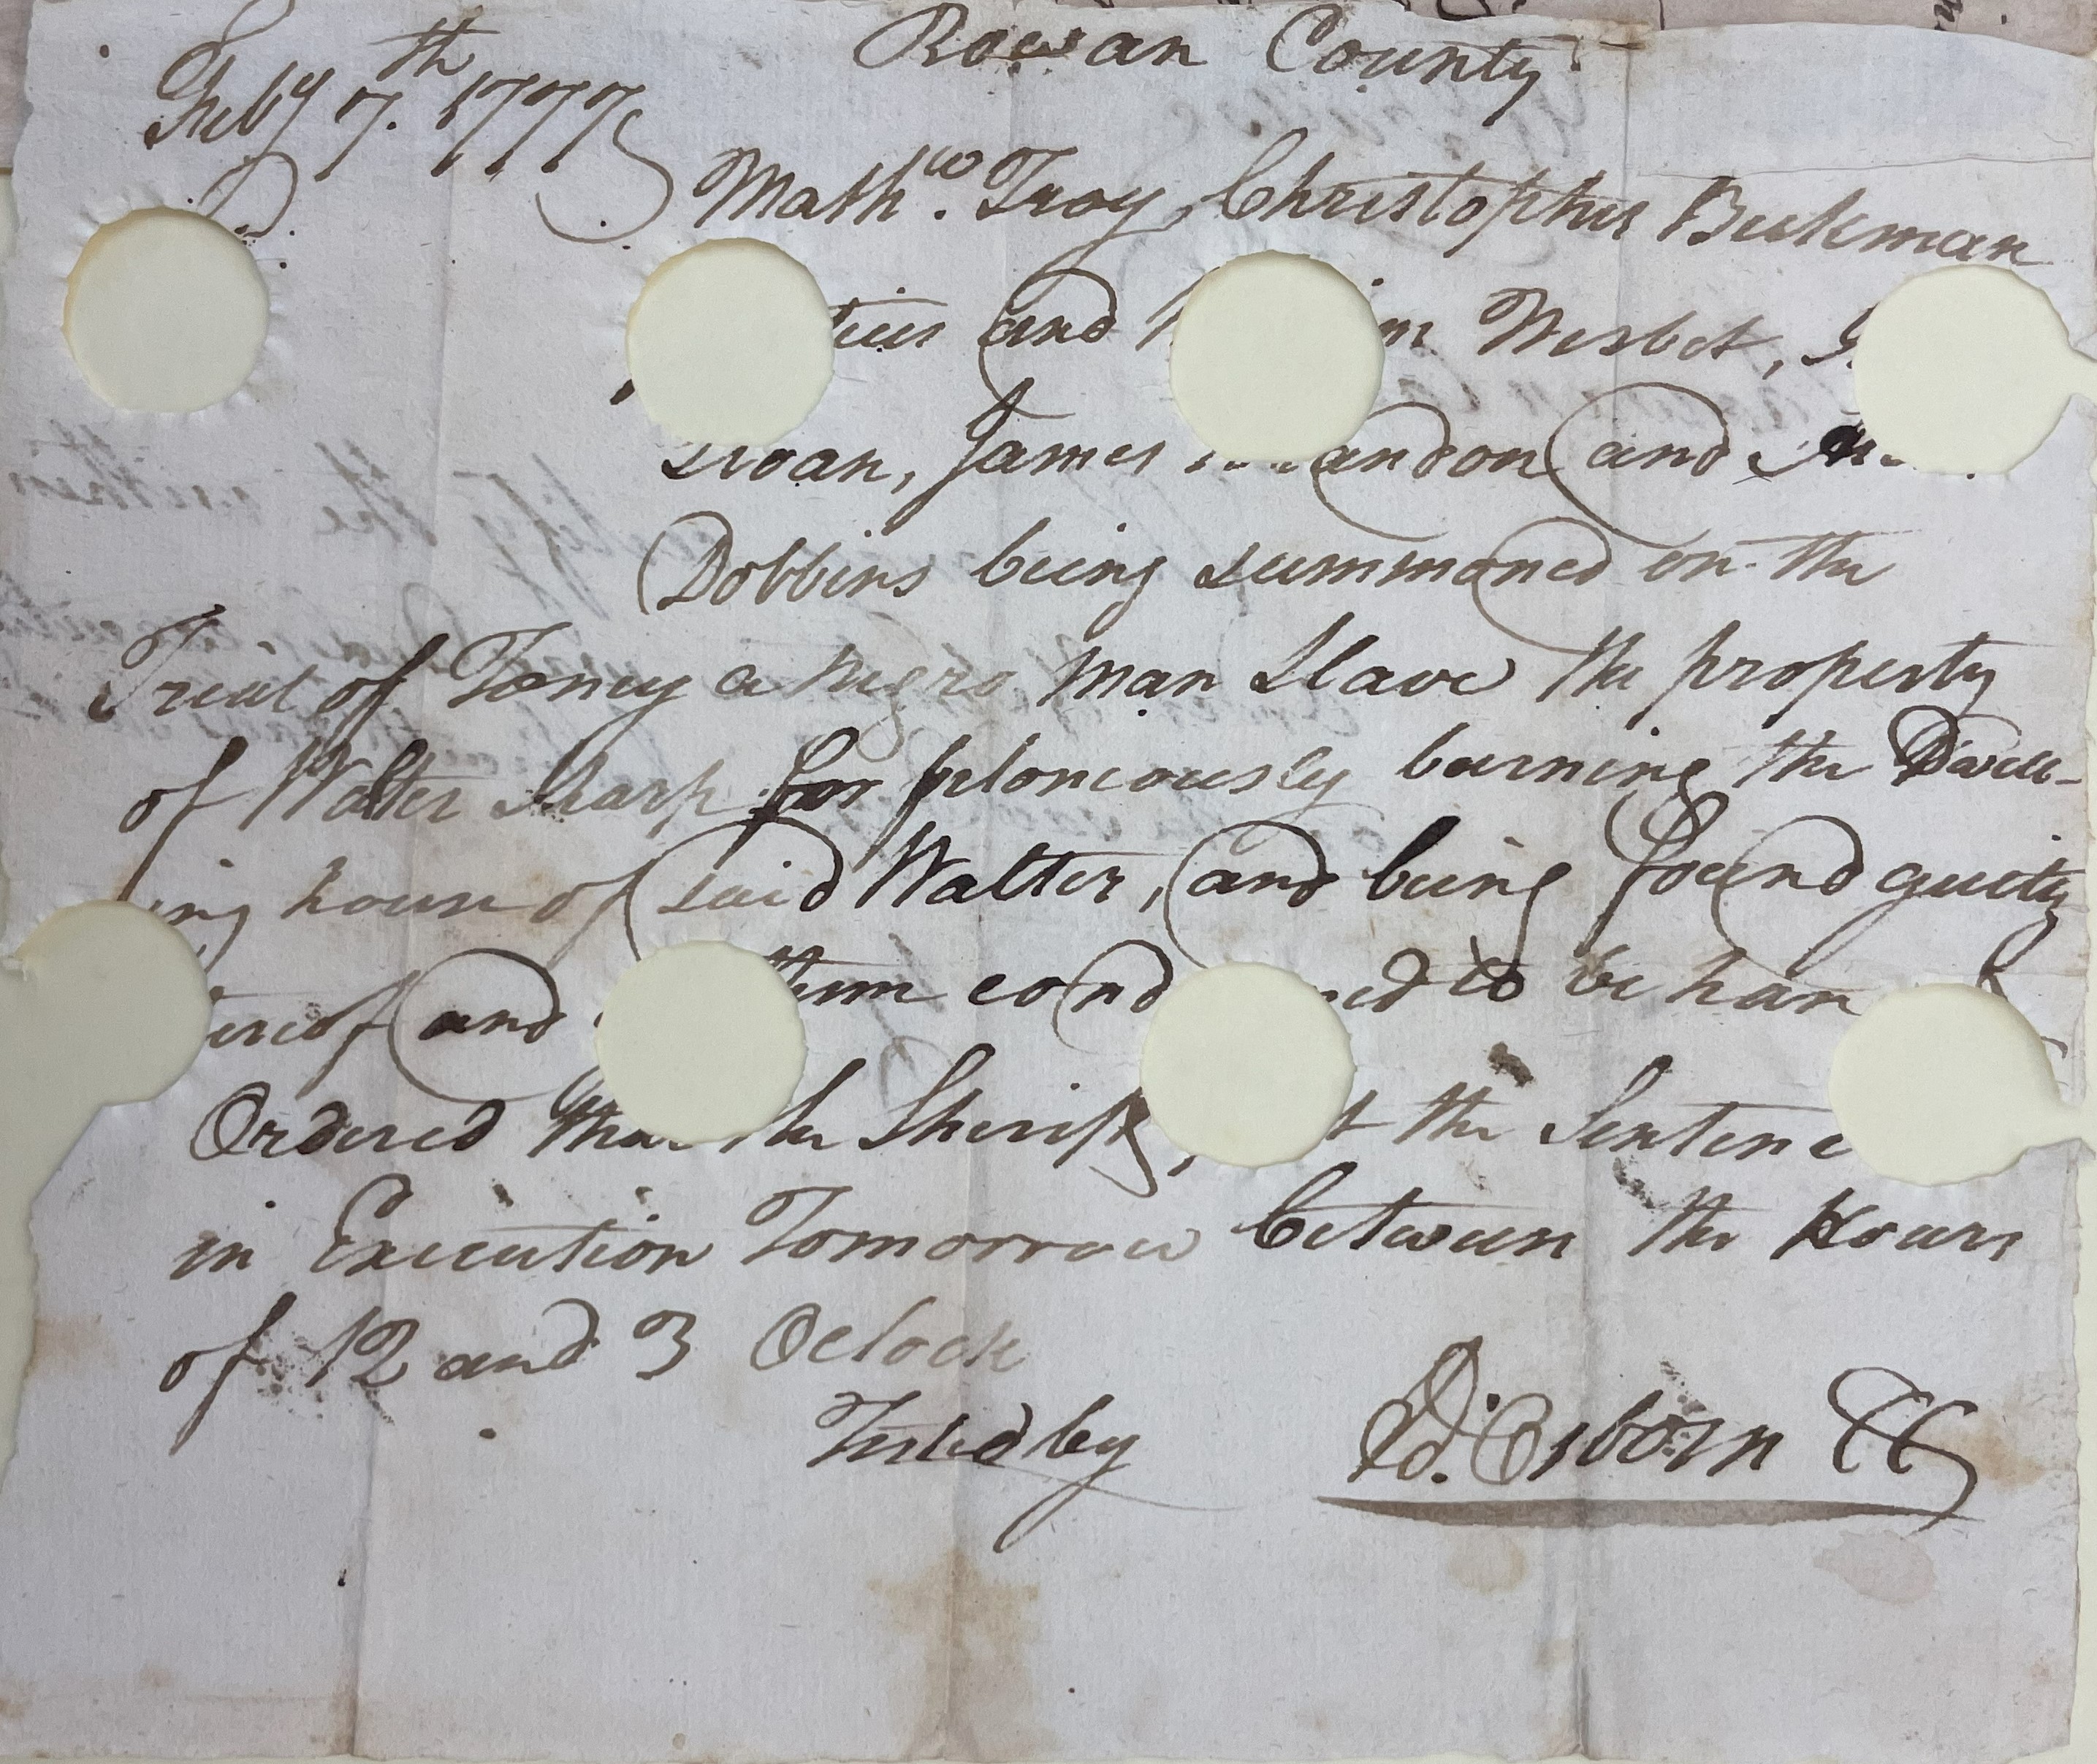 Rowan County
Feby 7th. 1777
Mathw. Troy, Christopher Beekman
tices and m Nesbet,
Sloan, James Brandon and
Dobbins being summoned on the
Trial of Toney a Negro man Slave the property
of Walter Sharp for feloniously burning the Dwell-
ing house of said Walter, and being found guilty
ereof and them cond ned to be han
Ordered that the Sheriff, t the Sentenc
in Execution Tomorrow between the Hours
of 12 and 3 Oclock
Tested by Ad. Osborn CC